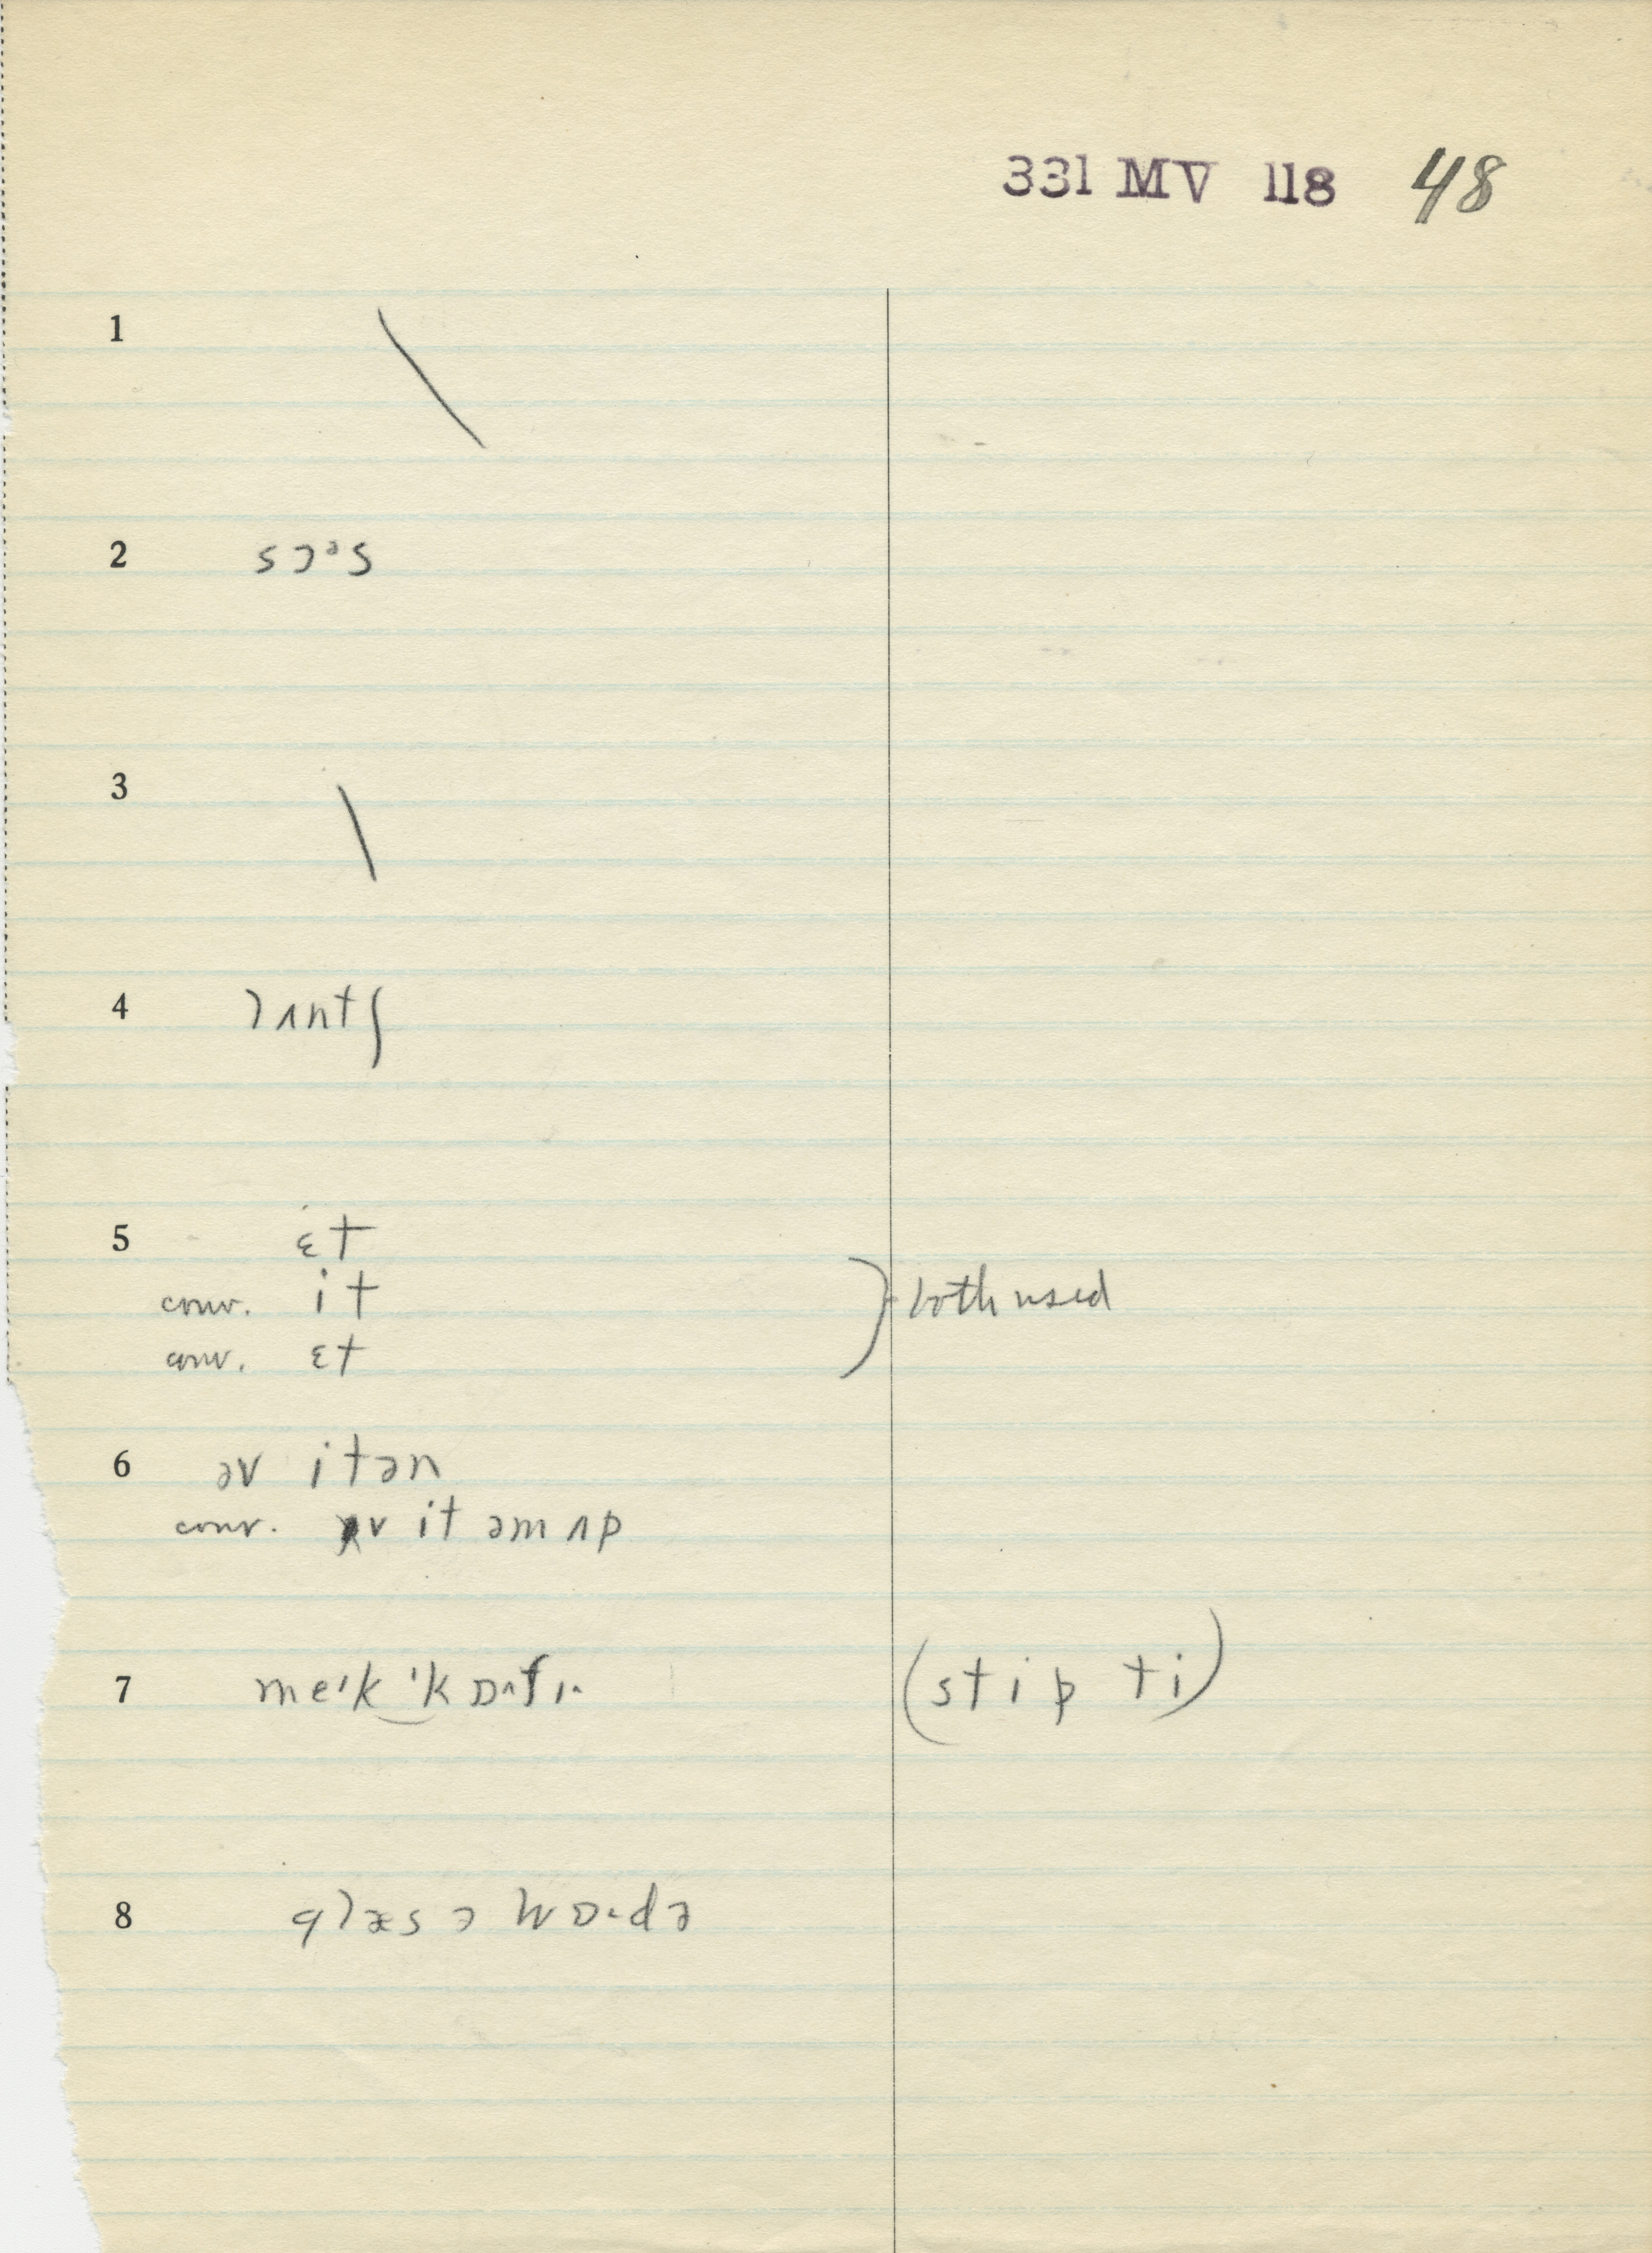 331 MV 118 48
1
2 sɔᵊs
3
4 lʌntʃ
5 ɛt
conv. it
conv. ɛt
both used
6 əv itən
conv. v it əm ʌp
7 me'k 'kɒˑfɪˑ (stip ti)
8 glæs ə wɒˑdə